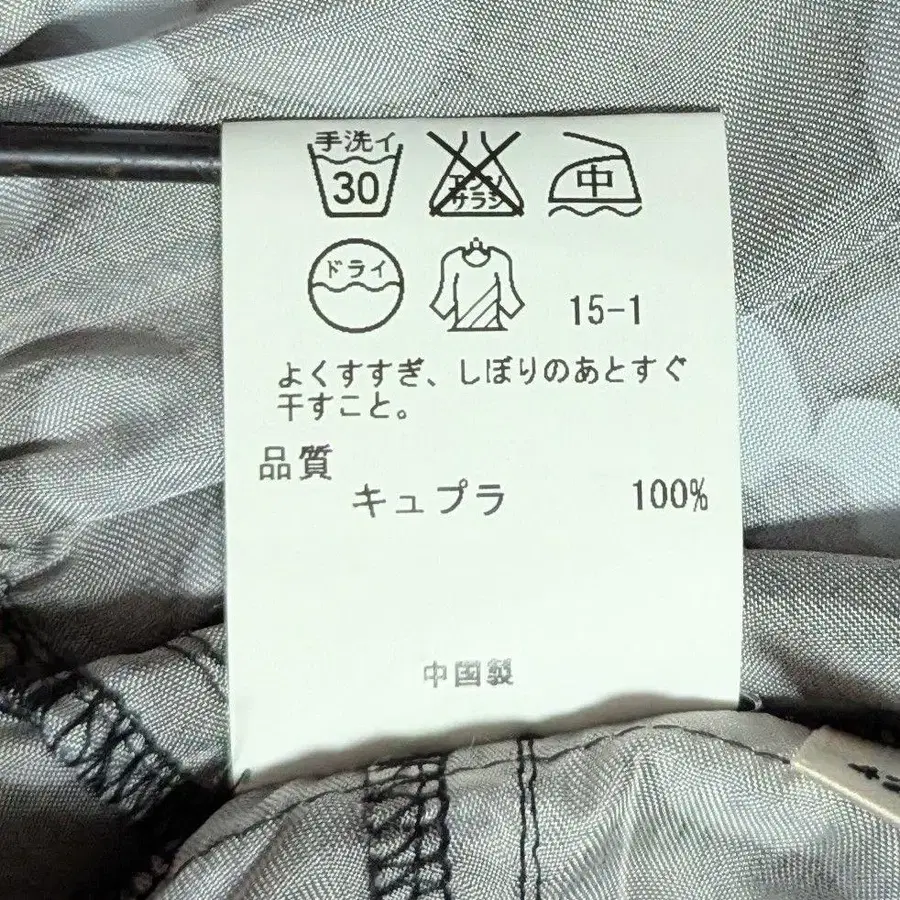 手洗イ
30
エンソ
サラシ
中
ドライ
15-1
よくすすぎ、しぼりのあとすぐ
干すこと。
品質
キュプラ 100%
中国製